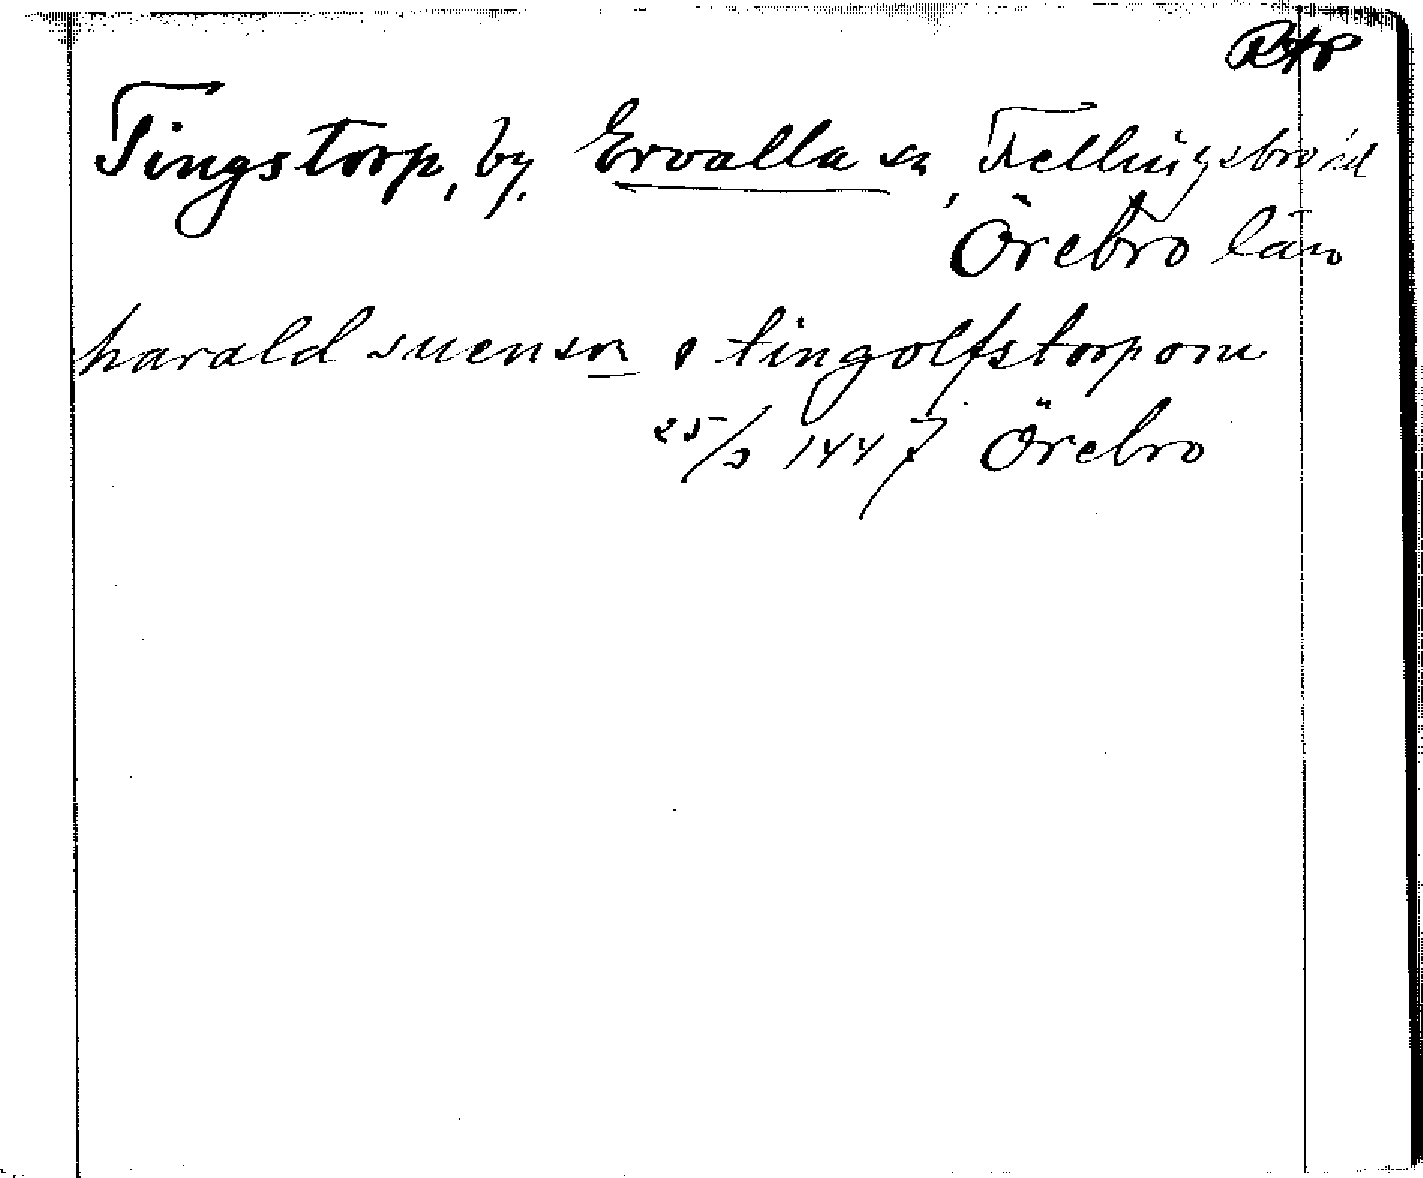 Tingstorp, by, Ervalla sn, Fellingsbro hd
Örebro län
harald suenson o tingolfstorpom
25/3 1447 Örebro